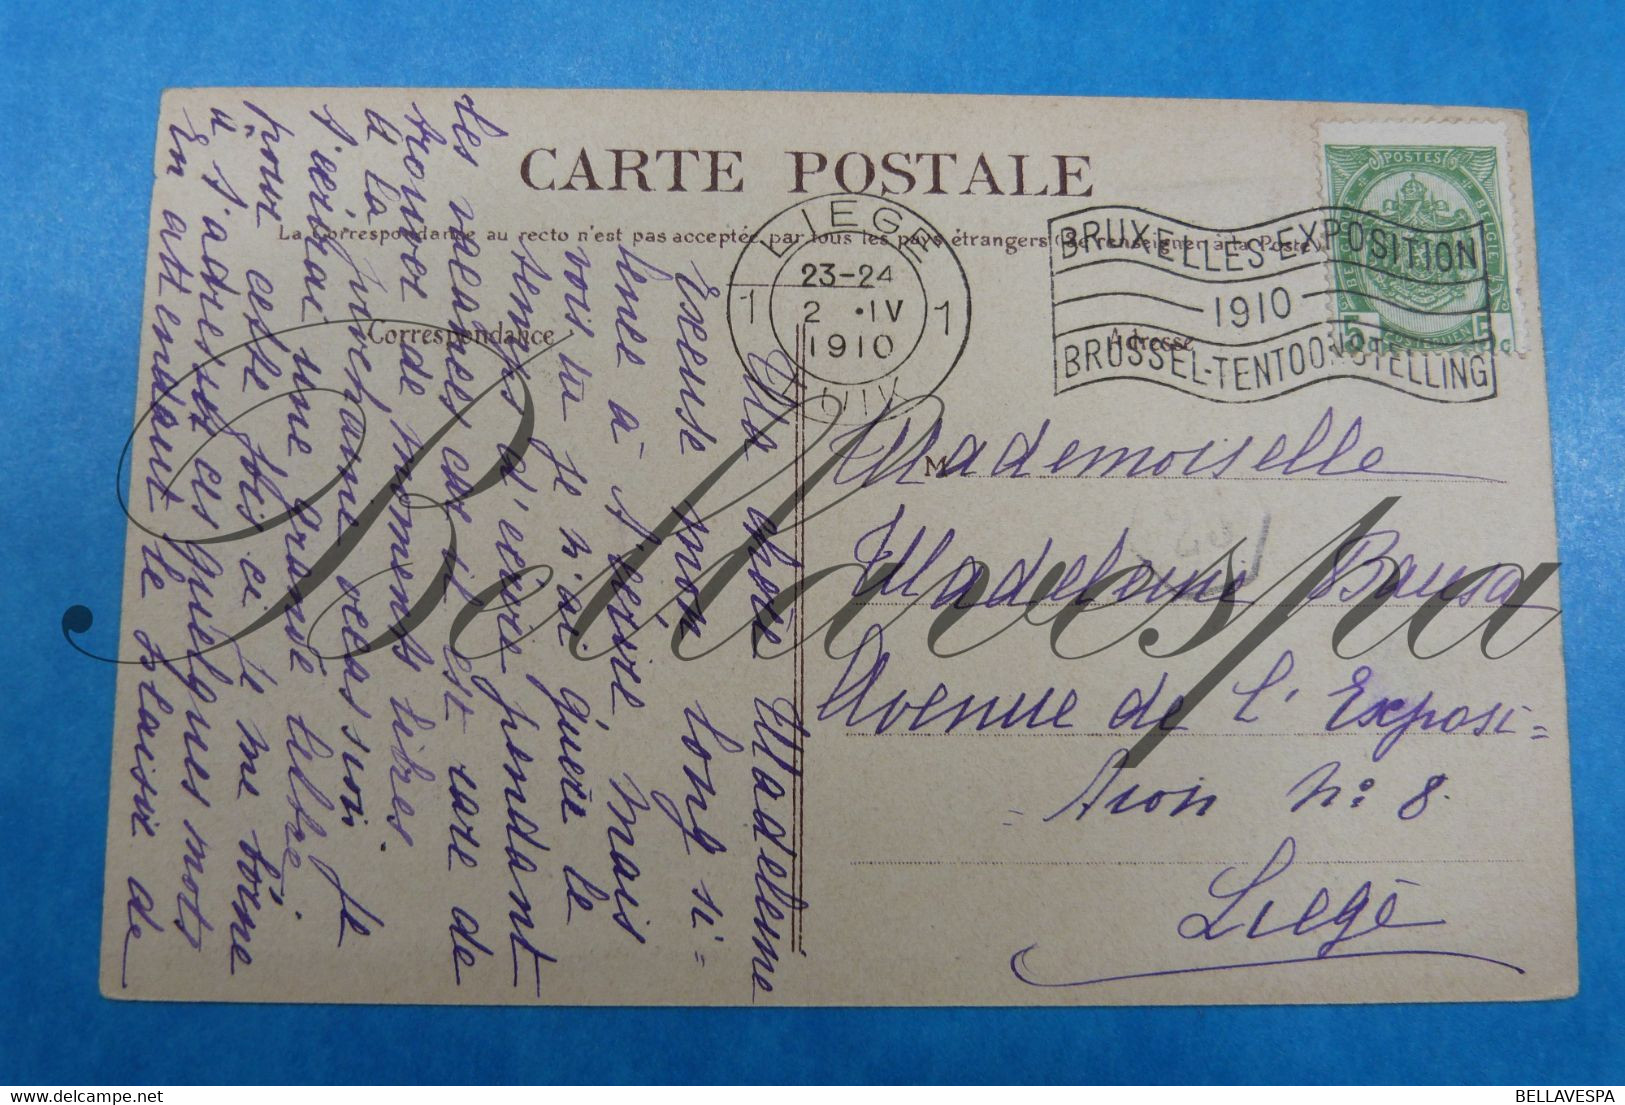 CARTE POSTALE
La Correspondance au recto n'est pas acceptée par tous les pays étrangers (Se renseigner à la Poste)
Correspondance
Adresse
LIEGE
1 23-24 1
2 ·IV
1910
LUIK
BRUXELLES-EXPOSITION
1910
BRUSSEL-TENTOONSTELLING
POSTES
5 5
M
Mademoiselle
Madeleine Bausa
Avenue de l'Exposi=
=tion No: 8.
Liège
Ma chère Madeleine
Excuse mon long si=
lence à t'écrire, mais
vois tu je n'ai guère le
temps d'écrire pendant
les veines car il est rare de
trouver de moments libres.
à la prochaine occassion je
t'écrirai une grande lettre
pour cette fois ci je me borne
à t'adresser ces quelques mots
En attendant le plaisir de
Bellavespa
BELLAVESPA